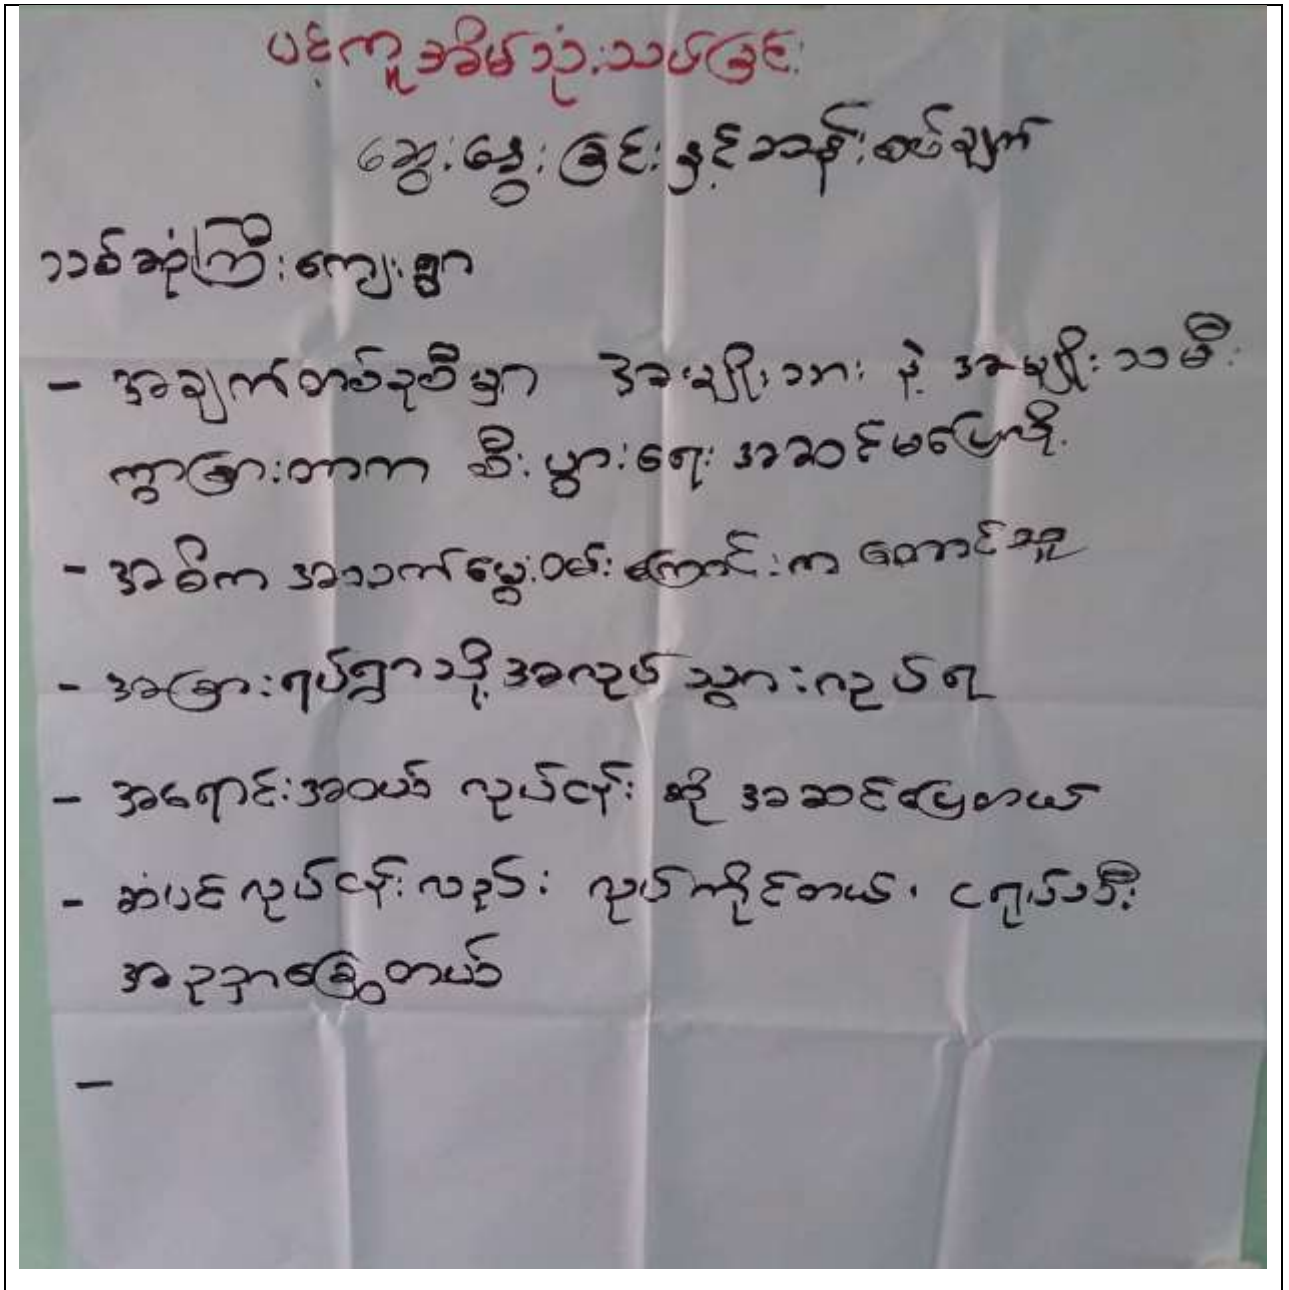 ပင့်ကူအိမ်သုံးသပ်ခြင်း
ဆွေးနွေးခြင်းနှင့်ဆန်းစစ်ချက်
သစ်ဆုံကြီးကျေးရွာ
- အချက်တစ်ခုစီမှာ အမျိုးသား နဲ့ အမျိုးသမီး
ကွာခြားတာက စီးပွားရေး အဆင်မပြေလို့
- အဓိက အသက်မွေးဝမ်းကြောင်းက တောင်သူ
- အခြားရပ်ရွာသို့အလုပ်သွားလုပ်ရ
- အရောင်းအဝယ် လုပ်ငန်း ဆို အဆင်ပြေတယ်
- ဆံပင်လုပ်ငန်းလည်း လုပ်ကိုင်တယ်၊ ငရုပ်သီး
အညှာခြွေတယ်
-